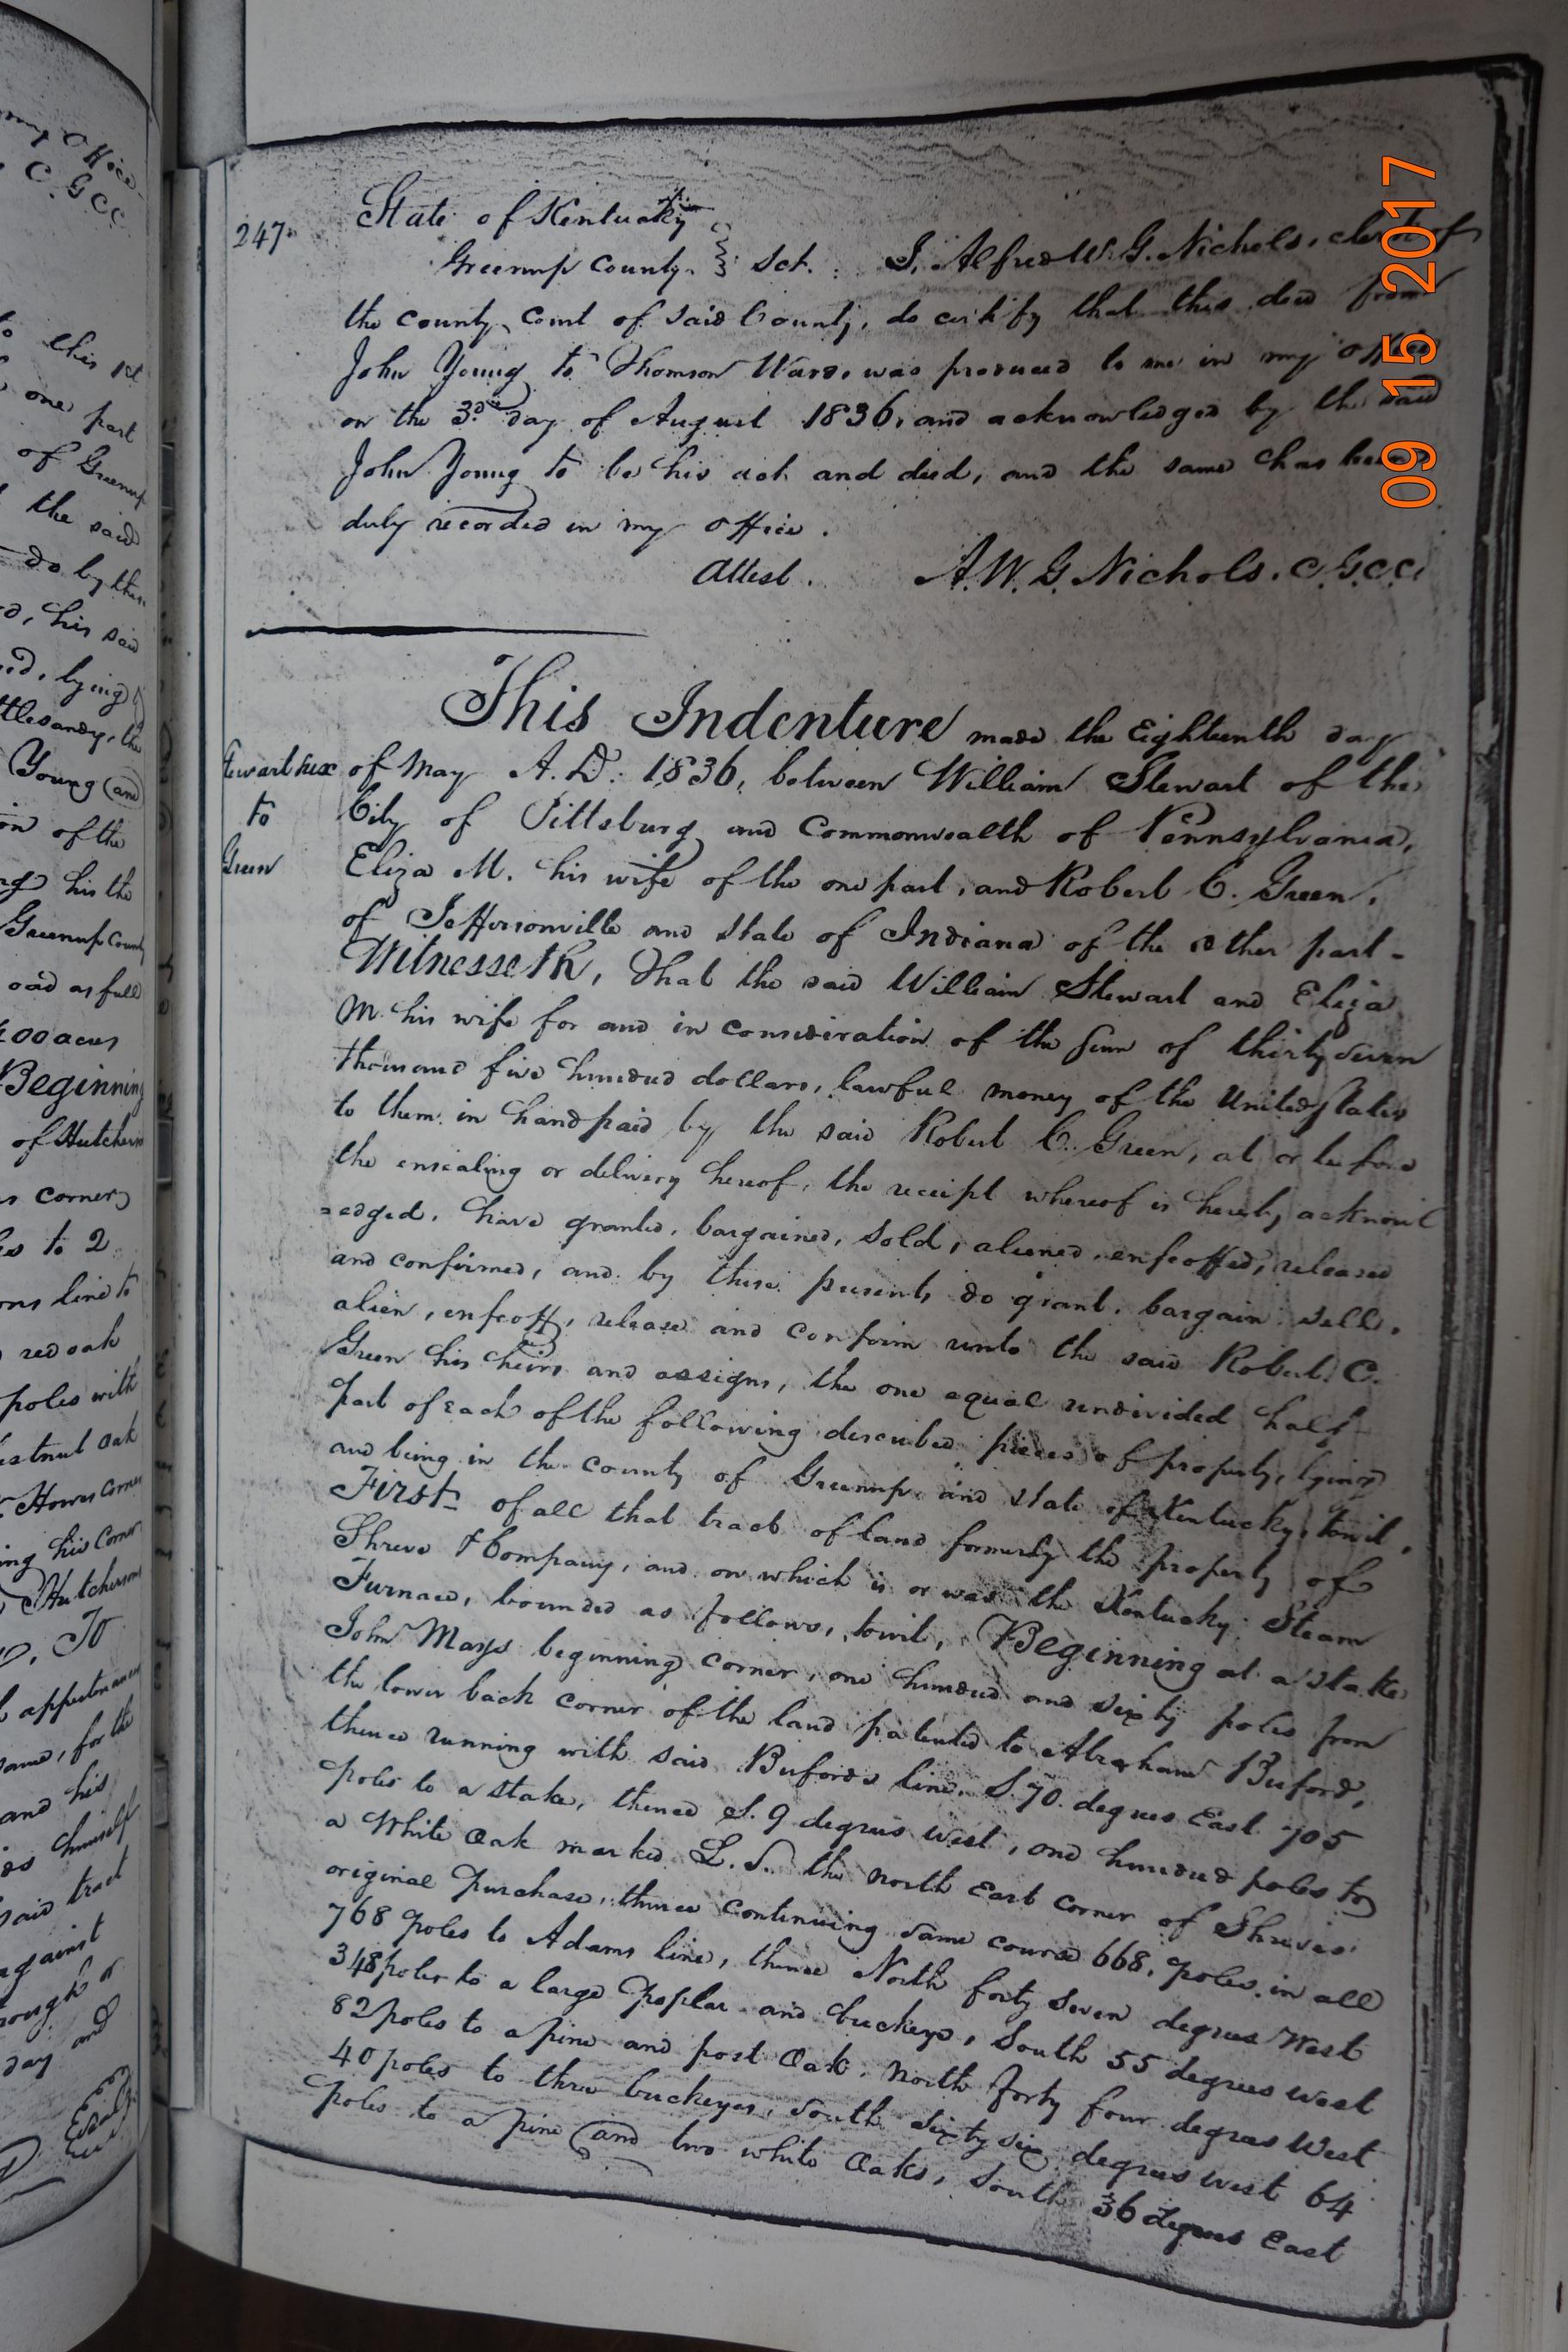 my Office
C. G. C. C.
this 1st
one part
of Greenup
the said
do by these
his said
lying
the
Young and
on of the
his the
Greenup County
oad as full
400 acres
Beginning
of Hutcherson
corner
to 2
line to
red oak
poles with
estnut oak
Howes Corner
ing his Corner
Hutcherson
To
appertenan
same, for the
and his
himself
said tract
against
day and
247.
State of Kentucky
Greenup County. } Sct. I, Alfred W. G. Nichols, clerk of
the County Court of said County, do certify that this deed from
John Young to Thomson Ward, was produced to me in my office
on the 3rd day of August 1836, and acknowledged by the said
John Young to be his act and deed, and the same has been
duly recorded in my office.
Attest. A. W. G. Nichols. C. G. C. C.
This Indenture made the Eighteenth day
Stewart &ux of May A. D. 1836, between William Stewart of the
to City of Pittsburg and Commonwealth of Pennsylvania,
Green Eliza M. his wife of the one part, and Robert C. Green,
of Jeffersonville and state of Indiana of the other part-
Witnesseth, That the said William Stewart and Eliza
M. his wife for and in consideration of the sum of thirty seven
thousand five hundred dollars, lawful money of the United States
to them in hand paid by the said Robert C. Green, at or before
the ensealing or delivery hereof, the receipt whereof is hereby acknowl
=edged, have granted, bargained, sold, aliened, enfeoffed, released
and confirmed, and by these presents do grant, bargain sell,
alien, enfeoff, release and confirm unto the said Robert C.
Green his heirs and assigns, the one equal undivided half
part of each of the following described pieces of property, lying
and being in the county of Greenup and state of Kentucky, towit,
First of all that tract of land formerly the property of
Shreve & Company, and on which is or was the Kentucky Steam
Furnace, bounded as follows, towit, Beginning at a stake
John Mays beginning corner, one hundred and sixty poles from
the lower back corner of the land patented to Abraham Buford,
thence running with said Bufords line S. 70 degrees East 705
poles to a stake, thence S. 9 degrees west, one hundred poles to
a White Oak marked L. S. the north East corner of Shreves
original purchase, thence continuing same course 668, poles, in all
768 poles to Adams line, thence North forty seven degrees West
348 poles to a large poplar and buckeye, South 55 degrees west
82 poles to a pine and post Oak, North forty four degrees West
40 poles to three buckeyes, South sixty six degrees west 64
poles to a pine and two white Oaks, South 36 degrees East
09 15 2017